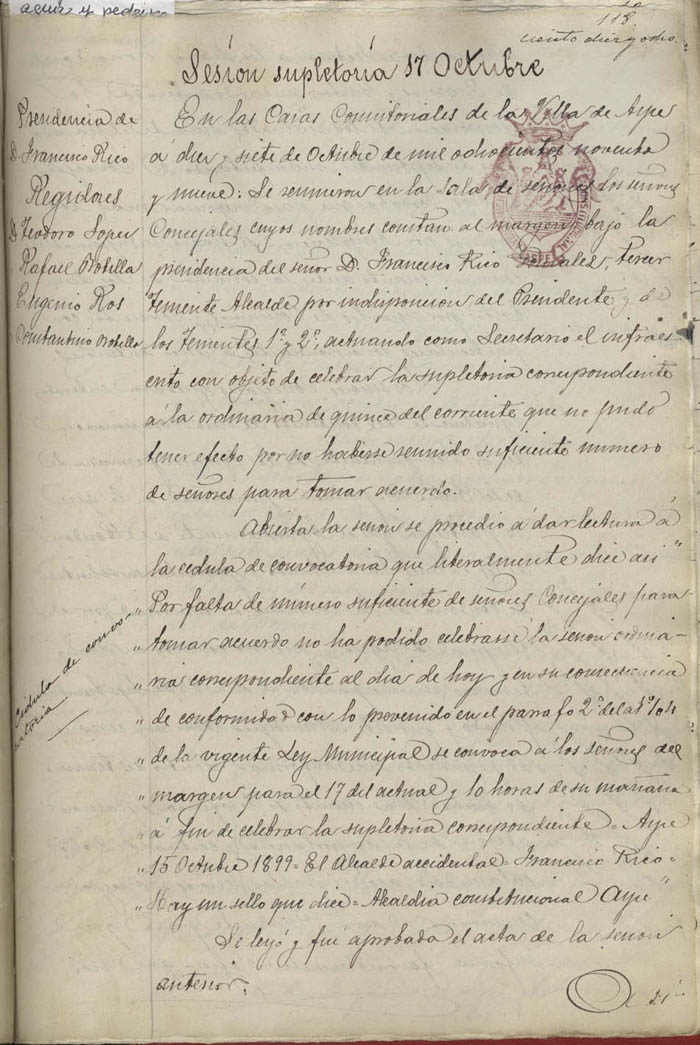 aguas y pedrisco
118
ciento diez y ocho.
Sesión supletoria 17 Octubre
Presidencia de
D. Francisco Rico
Regidores
D. Teodoro Lopez
Rafael Botella
Eugenio Ros
Constantino Botella
En las Casas Consistoriales de la Villa de Aspe
á diez y siete de Octubre de mil ochocientos noventa
y nueve: Se reunieron en la Sala de sesiones los señores
Concejales cuyos nombres constan al margen bajo la
presidencia del señor D. Francisco Rico Morales, tercer
Temiente Alcalde por indisposicion del Presidente y de
los Temientes 1º y 2º, actuando como Secretario el infraes-
crito con objeto de celebrar la supletoria correspondiente
á la ordinaria de quince del corriente que no pudo
tener efecto por no haberse reunido suficiente numero
de señores para tomar acuerdo.
Abierta la sesion se procedio á dar lectura á
la cedula de convocatoria que literalmente dice asi "
Cédula de convo-
catoria
" Por falta de número suficiente de señores Concejales para
" tomar acuerdo no ha podido celebrarse la sesion ordina-
" ria correspondiente al dia de hoy y en su consecuencia
" de conformidad con lo prevenido en el parrafo 2º del art.º 104
" de la vigente Ley Municipal se convoca á los señores del
" margen para el 17 del actual y 10 horas de su mañana
" á fin de celebrar la supletoria correspondiente = Aspe
" 15 Octubre 1899 = El Alcalde accidental = Francisco Rico =
" Hay un sello que dice = Alcaldia constitucional Aspe "
Se leyó y fué aprobada el acta de la sesion
anterior.